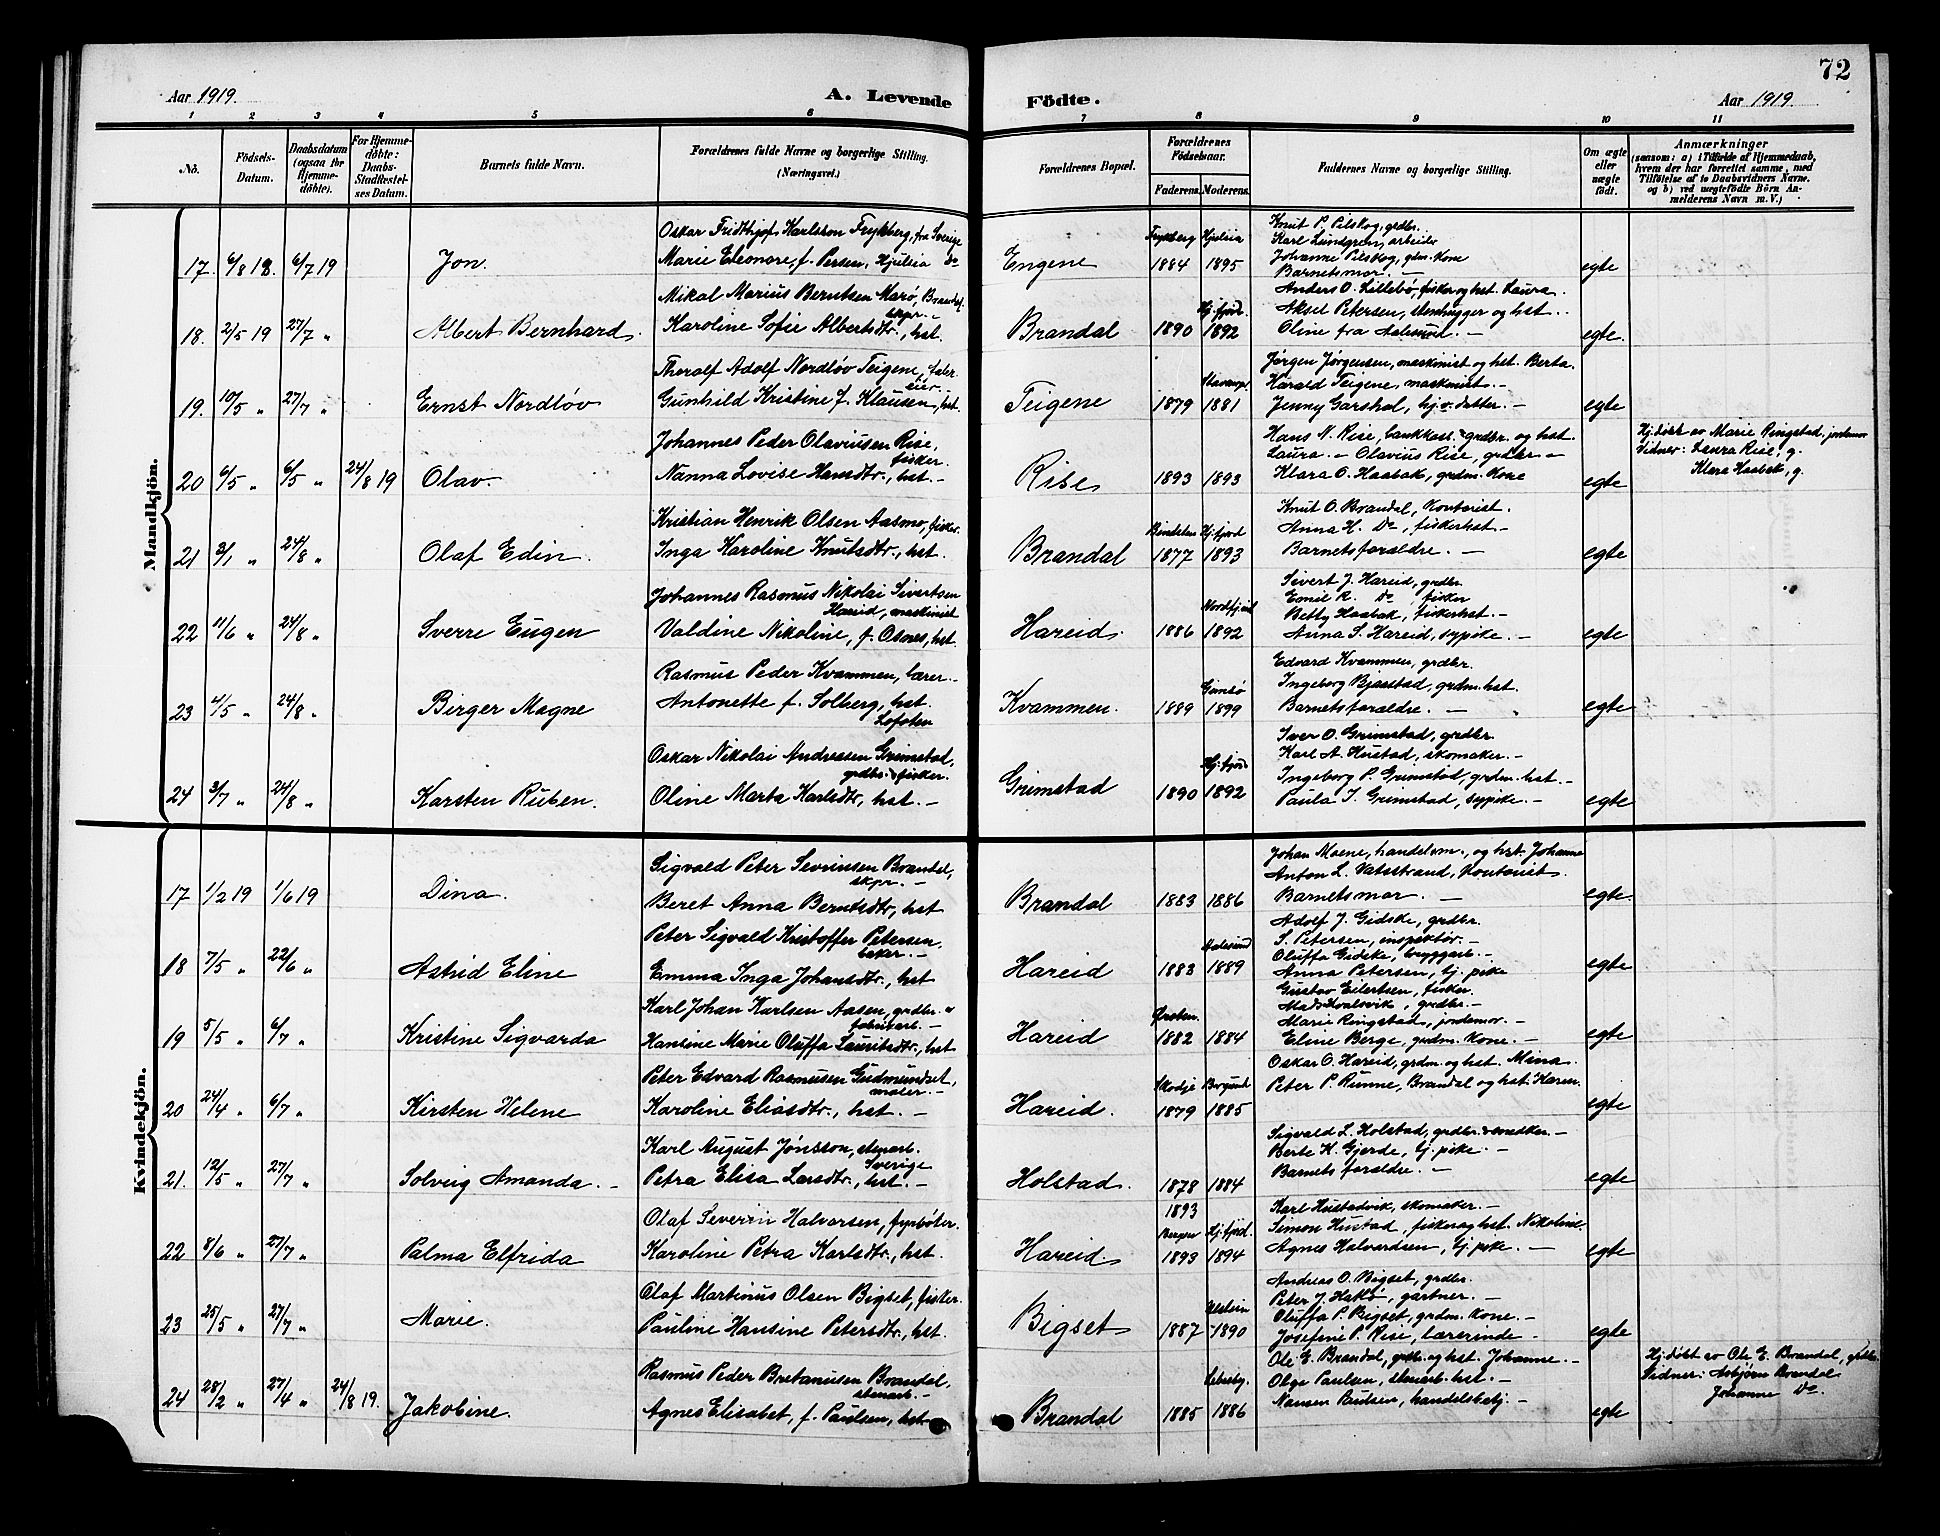 72
Aar 1919.
A. Levende
Födte.
Aar 1919.
1 2 3 4 5 6 7 8 9 10 11
No.
Födsels-Datum.
Daabsdatum (ogsaa for Hjemme-döbte).
For Hjemme-döbte: Daabs-Stadfæstel-ses Datum.
Barnets fulde Navn.
Forældrenes fulde Navne og borgerlige Stilling.
(Næringsvei.)
Forældrenes Bopæl.
Forældrenes Födselsaar.
Faderens. Moderens.
Faddernes Navne og borgerlige Stilling.
Om ægte eller uægte födt.
Anmærkninger
(saasom: a) i Tilfælde af Hjemmedaab,
hvem der har forrettet samme, med
Tilföielse af to Daabsvidners Navne.
og b) ved uægtefödte Börn An-
melderens Navn m.V.)
Mandkjön.
17. 6/8 18. 6/7 19 Jon.
Oskar Fridthjof Karlsson Frykberg, fra Sverige
Marie Eleonore, f. Persen, Hjuleia Do
Engene
Frykberg 1884 Hjuleia 1895
Knut P. Pilskog, grdbr.
Karl Lundgren, arbeider
Johanne Pilskog, gdm. kone
Barnetsmor. —
egte
18. 2/5 19 27/7 „ Albert Bernhard
Mikal Marius Berntsen Marø, Brandal.
skpr. —
Karoline Sofie Albertsdtr., hst.
Brandal
1890 Hj.fjord. 1892
Anders O. Lillebø, fisker og hst. Laura.
Aksel Petersen, stenhugger og hst..
Oline fra Aalesund. —
egte.
19. 10/5 „ 27/7 „ Ernst Nordløv
Thoralf Adolf Nordløv Teigene, faler-
eier —
Gunhild Kristine f. Klausen, hst.
Teigene
1879 Stavanger 1881
Jørgen Jørgensen, maskinist og hst. Berta.
Harald Teigene, maskinist. —
Jenny Garshol, hj.v. datter. —
egte
20 6/5 „ 6/5 „ 24/8 19 Olav.
Johannes Peder Olaviusen Rise,
fisker.
Nanna Lovise Hansdtr., hst. —
Rise
1893 1893
Hans N. Rise, bankkass. grdbr. og hst.
Laura. — Olavius Rise, grdbr —
Klara O. Haabak, grdm. kone
egte
Hj.døbt av Marie Ringstad, jordmor
Vidner: Laura Rise, g.
Klara Haabak, g.
21 2/1 „ 24/8 „ Olaf Edin.
Kristian Henrik Olsen Aasmo, fisker.
Inga Karoline Knutsdtr., hst.
Brandal
Bindalen 1877 Hj.fjord 1893
Knut O. Brandal, kontorist.
Anna H. Do, fiskerhst —
Barnetsforældre. —
egte
22 11/6 „ 24/8 „ Sverre Eugen
Johannes Rasmus Nikolai Sivertsen
Hareid, maskinist
Valdine Nikoline, f. Osnes, hst.
Hareid.
1886 Nordfjord 1892
Sivert J. Hareid, grdbr.
Emil R. Do, fisker
Betty Haabak, fiskerhst. —
Anna S. Hareid, sypike. —
egte
23 4/5 „ 24/8 „ Birger Magne
Rasmus Peder Kvammen, lærer. —
Antonette f. Solberg, hst.
Lofoten
Kvammen.
1889 Gimsø 1899
Edvard Kvammen, grdbr.
Ingeborg Bjaastad, grdm. hst.
Barnetsforældre. —
egte
24 3/7 „ 24/8 „ Karsten Ruben.
Oskar Nikolai Andreassen Grimstad,
grdbr. fisker.
Oline Marta Karlsdtr, hst. —
Grimstad
1890 Hj.fjord 1892
Iver O. Grimstad, grdbr.
Karl A. Hustad, skomaker. —
Ingeborg P. Grimstad, grdm. hst. —
Paula I. Grimstad, sypike. —
egte
Kvindekjön.
17 1/2 19 1/6 19 Dina.
Sigvald Peter Sevrinsen Brandal,
skpr. —
Beret Anna Berntsdtr, hst
Brandal
1883 1886
Johan Moene, handelsm., og hst. Johanne
Anton L. Vatsstrand, kontorist.
Barnetsmor. —
egte.
18 7/5 „ 22/6 „ Astrid Eline
Peter Sigvald Kristoffer Petersen.
baker. —
Emma Inga Johansdtr., hst
Hareid
1883 Aalesund 1889
Adolf J. Gidske, grdbr.
S. Petersen, inspektør. —
Oluffa Gidske, bryggarb. —
Anna Petersen, hj. pike
egte
19 5/5 „ 6/7 „ Kristine Sigvarda
Karl Johan Karlsen Aasen, grdbr. &
fabrikarb. —
Hansine Marie Oluffa Lauritsdtr, hst
Hareid
Ørsten. 1882 1884
Gustav Eilertsen, fisker.
Mads Kvalsvik, grdbr. —
Marie Ringstad, jordemor. —
Eline Berge, grdm. kone. —
egte
20 24/4 „ 6/7 „ Kirsten Helene
Peter Edvard Rasmusen Gudmundset,
maler. —
Karoline Eliasdtr., hst. —
Hareid.
Skodje 1879 Borgund 1885
Oskar O. Hareid, grdm. og hst. Mina.
Peter P. Runne, Brandal og hst. Karen.
egte
21. 12/5 „ 27/7 „ Solveig Amanda. —
Karl August Jónsson, stenarb.
Sverige
Petra Elisa Larsdtr., hst. —
Holstad.
1878 1884
Sigvald L. Holstad, grdbr. & snedker. —
Berte K. Gjerde, hj. pike. —
Barnets forældre. —
egte
22 8/6 „ 27/7 „ Palma Elfrida
Olaf Severin Halvorsen, fyrbøter.
Karoline Petra Karlsdtr., hst.
Hareid.
1893
Bergen 1893 Hj.fjord. 1894
Karl Hustadvik, skomaker. —
Simon Hustad, fisker og hst. Nikoline
Agnes Halvardsen, hj. pike. —
egte
23 25/5 „ 27/7 „ Marie.
Olaf Martinus Olsen Bigset, fisker.
Pauline Hansine Petersdtr, hst.
Bigset
1887 Ulstein 1890
Andreas O. Bigset, grdbr.
Peter J. Hakø, gartner. —
Oluffa P. Bigset, grdm. kone. —
Josefine P. Rise, lærerinde. —
egte
24 28/2 „ 27/4 „ 24/8 19. Jakobine.
Rasmus Peder Bretanusen Brandal,
stenarb. —
Agnes Elisabet, f. Paulsen, hst.
Brandal
1885 Lebesby. 1886
Ole E. Brandal, grdbr. og hst. Johanne. —
Olga Paulsen, stenarb. hst. —
Nansen Paulsen, handelsbetj. —
egte
Hj.døbt av Ole E. Brandal, grdbr.
Vidner: Asbjørn Brandal
Johanne Do.